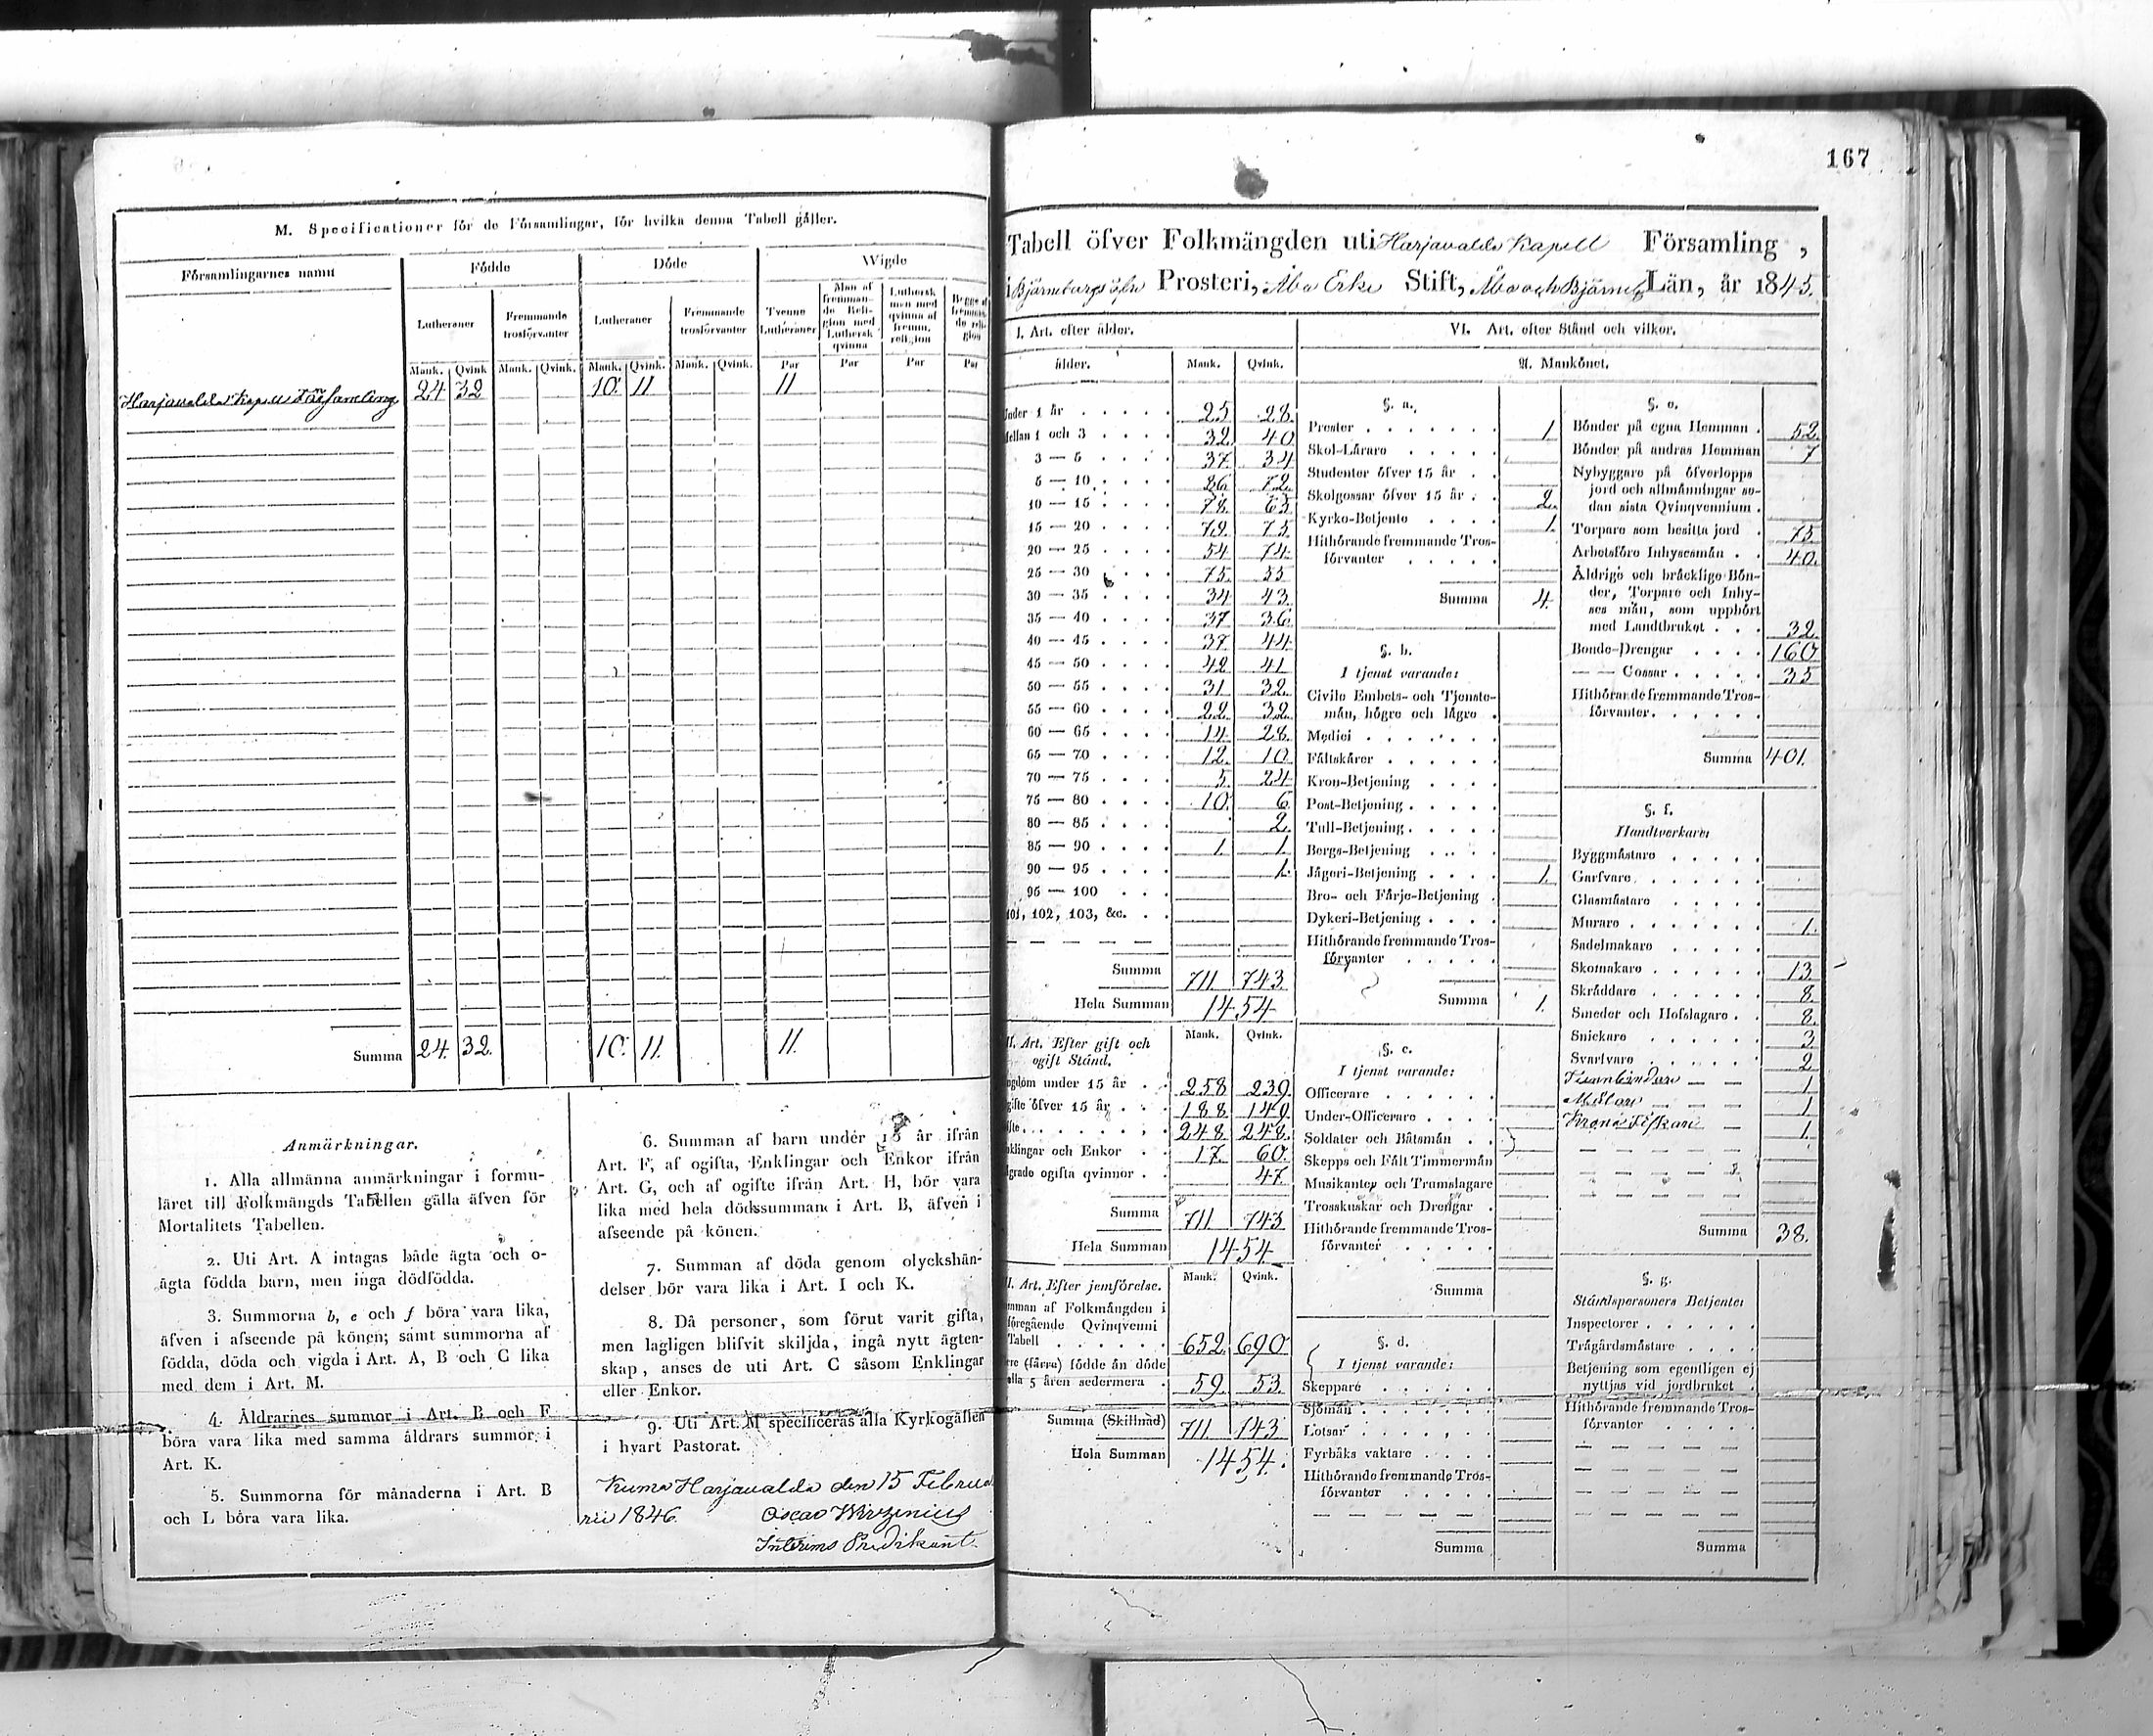 M. Specificationer för de Församlingar, för hvilka denna Tabell gäller.
Församlingarnes namn
Födde
Döde
Wigde
Lutheraner
Fremmande trosförvanter
Lutheraner
Fremmande trosförvanter
Tvenne Lutheraner
Man af fremmande Religion med Luthersk qvinna
Luthersk man med qvinna af fremm. religion
Mank. Qvink Mank. Qvink. Mank. Qvink. Mank. Qvink. Par Par Par Par
Harjavalda Kapell Församling 24 32 10. 11 11
Summa 24. 32. 10. 11. 11.
Anmärkningar.
1. Alla allmänna anmärkningar i formu-
läret till Folkmängds Tabellen gälla äfven för
Mortalitets Tabellen.
2. Uti Art. A intagas både ägta och o-
ägta födda barn, men inga dödfödda.
3. Summorna b, e och f böra vara lika,
äfven i afseende på könen; samt summorna af
födda, döda och vigda i Art. A, B och C lika
med dem i Art. M.
4. Åldrarnes summor i Art. B och F
böra vara lika med samma åldrars summor i
Art. K.
5. Summorna för månaderna i Art. B
och L böra vara lika.
6. Summan af barn under år ifrån
Art. F, af ogifta, Enklingar och Enkor ifrån
Art. G, och af ogifte ifrån Art. H, bör vara
lika med hela dödssumman i Art. B, äfven i
afseende på könen.
7. Summan af döda genom olyckshän-
delser bör vara lika i Art. I och K.
8. Då personer, som förut varit gifta,
men lagligen blifvit skiljda, ingå nytt ägten-
skap, anses de uti Art. C såsom Enklingar
eller Enkor.
9. Uti Art. M specificeras alla Kyrkogällen
i hvart Pastorat.
Kumo Harjavalda den 15 Februa
rii 1846.
Oscar Wirzenius
Interims Predikant.
167
Tabell öfver Folkmängden uti Harjavalda Kapell Församling,
i Björneborgs öfre Prosteri, Åbo Erke Stift, Åbo och Björneb. Län, år 1845.
I. Art. efter ålder.
ålder. Mank. Qvink.
Under 1 år 25 28.
Mellan 1 och 3 32. 40
3 — 5 37. 34
5 — 10 86. 72.
10 — 15 78. 65
15 — 20 79. 75.
20 — 25 54 74.
25 — 30 75. 55
30 — 35 34 43.
35 — 40 37 36.
40 — 45 37 44
45 — 50 42 41
50 — 55 31 32.
55 — 60 22. 32.
60 — 65 14 28.
65 — 70 12. 10
70 — 75 5. 24
75 — 80 10. 6
80 — 85 2.
85 — 90 1. 1.
90 — 95 1.
95 — 100
101, 102, 103, &c.
Summa 711 743
Hela Summan 1454
II. Art. Efter gift och
ogift Stånd.
Mank. Qvink.
ngdom under 15 år 258 239
gifte öfver 15 år 188 149
ifte 248. 248.
nklingar och Enkor 17. 60.
lgrade ogifta qvinnor 47
Summa 711 743
Hela Summan 1454
II. Art. Efter jemförelse. Mank. Qvink.
mman af Folkmängden i
föregående Qvinqvenni
Tabell 652. 690
ere (färre) födde än döde
alla 5 åren sedermera 59. 53.
Summa (Skillnad) 711 143
Hela Summan 1454.
VI. Art. efter Stånd och vilkor.
A. Mankönet.
§. a.
Prester 1.
Skol-Lärare
Studenter öfver 15 år
Skolgossar öfver 15 år 2.
Kyrko-Betjente 1.
Hithörande fremmande Tros-
förvanter
Summa 4.
§. b.
I tjenst varande:
Civile Embets- och Tjenste-
män, högre och lägre
Medici
Fältskärer
Kron-Betjening
Post-Betjening
Tull-Betjening
Bergs-Betjening
Jägeri-Betjening 1.
Bro- och Färje-Betjening
Dykeri-Betjening
Hithörande fremmande Tros-
förvanter
Summa 1.
§. c.
I tjenst varande:
Officerare
Under-Officerare
Soldater och Båtsmän
Skepps och Fält Timmermän
Musikanter och Trumslagare
Trosskuskar och Drengar
Hithörande fremmande Tros-
förvanter
Summa
§. d.
I tjenst varande:
Skeppare
Sjömän
Lotsar
Fyrbåks vaktare
Hithörande fremmande Tros-
förvanter
Summa
§. e.
Bönder på egna Hemman 52.
Bönder på andras Hemman 7
Nybyggare på öfverlopps
jord och allmänningar se-
dan sista Qvinqvennium
Torpare som besitta jord 75
Arbetsföre Inhysesmän 40.
Åldrige och bräcklige Bön-
der, Torpare och Inhy-
ses män, som upphört
med Landtbruket 32.
Bonde-Drengar 160
— — Gossar 35
Hithörande fremmande Tros-
förvanter
Summa 401.
§. f.
Handtverkare:
Byggmästare
Garfvare
Glasmästare
Murare 1.
Sadelmakare
Skomakare 13.
Skräddare 8.
Smeder och Hofslagare 8.
Snickare 3
Svarfvare 2
1
Målare 1
Krono Fiskare 1.
Summa 38.
§. g.
Ståndspersoners Betjente:
Inspectorer
Trägårdsmästare
Betjening som egentligen ej
nyttjas vid jordbruket
Hithörande fremmande Tros-
förvanter
Summa